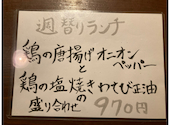 週替りランチ
鶏の唐揚げオニオンペッパー
と
鶏の塩焼きわさび正油の
盛り合わせ 970円